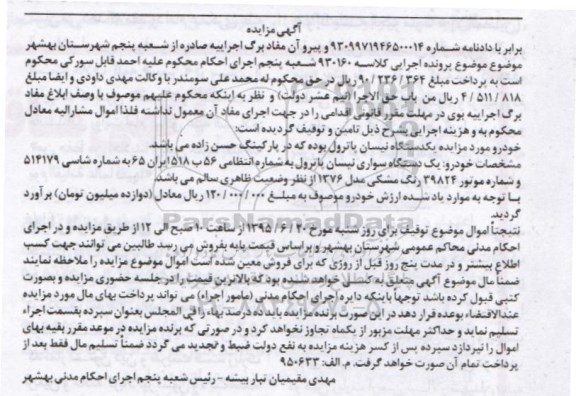 آگهی مزایده
برابر با دادنامه شماره ۹۳۰۹۹۷۱۹۴۶۵۰۰۰۱۴ و پیرو آن مفاد برگ اجراییه صادره از شعبه پنجم شهرستان بهشهر
موضوع موضوع پرونده اجرایی کلاسه ۹۳۰۱۶۰ شعبه پنجم اجرای احکام محکوم علیه احمد قابل سورکی محکوم
است به پرداخت مبلغ ۳۶۴ / ۲۳۶ / ۹۰ ریال در حق محکوم له محمد علی سومندر با وکالت مهدی داودی و ایفا مبلغ
۸۱۸ / ۵۱۱ / ۴ ریال من باب حق الاجرا (نیم عشر دولت) و نظر به اینکه محکوم علیهم موصوف با وصف ابلاغ مفاد
برگ اجراییه بوی در مهلت مقرر قانونی اقدامی را در جهت اجرای مفاد آن معمول نداشته فلذا اموال مشارالیه معادل
محکوم به و هزینه اجرایی بشرح ذیل تامین و توقیف گردیده است:
خودرو مورد مزایده یکدستگاه نیسان پاترول بوده که در پارکینگ حسن زاده می باشد.
مشخصات خودرو: یک دستگاه سواری نیسان پاترول به شماره انتظامی ۵۶ ب ۵۱۸ ایران ۶۵ به شماره شاسی ۵۱۴۱۷۹
و شماره موتور ۳۹۸۲۴ رنگ مشکی مدل ۱۳۷۶ از نظر وضعیت ظاهری سالم می باشد
با توجه به موارد یاد شده ارزش خودرو موصوف به مبلغ ۰۰۰/ ۰۰۰/ ۱۲۰ ریال معادل (دوازده میلیون تومان) برآورد
گردید.
نتیجتاً اموال موضوع توقیف برای روز شنبه مورخ ۲۰ / ۶ / ۱۳۹۵ از ساعت ۱۰ صبح الی ۱۲ از طریق مزایده و در اجرای
احکام مدنی محاکم عمومی شهرستان بهشهر و براساس قیمت پایه بفروش می رسد طالبین می توانند جهت کسب
اطلاع بیشتر و در مدت پنج روز قبل از روزی که برای فروش معین شده است اموال موضوع مزایده را ملاحظه نمایند
ضمناً مال موضوع آگهی متعلق به کسی خواهد شد بود که بالاترین قیمت را در جلسه حضوری مزایده و بصورت
کتبی قبول کرده باشد توجهاً باینکه دایره اجرای احکام مدنی (مامور اجراء) می تواند پرداخت بهای مال مورد مزایده
عندالاقتضاء بوعده قرار دهد در این صورت برنده مزایده باید ده درصد بهاء را فی المجلس بعنوان سپرده بقسمت اجراء
تسلیم نماید و حداکثر مهلت مزبور از یکماه تجاوز نخواهد کرد و در صورتی که برنده مزایده در موعد مقرر بقیه بهای
اموال را نپردازد سپرده پس از کسر هزینه مزایده به نفع دولت ضبط و تجدید می گردد ضمناً تسلیم مال فقط بعد از
پرداخت تمام آن صورت خواهد گرفت. م. الف: ۹۵۰۶۳۳
مهدی مقیمیان نیار بیشه - رئیس شعبه پنجم اجرای احکام مدنی بهشهر
ParsNamadData